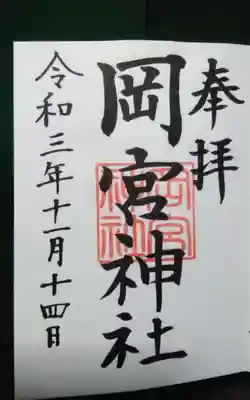 奉拝
岡宮神社
岡宮神社
令和三年十一月十四日